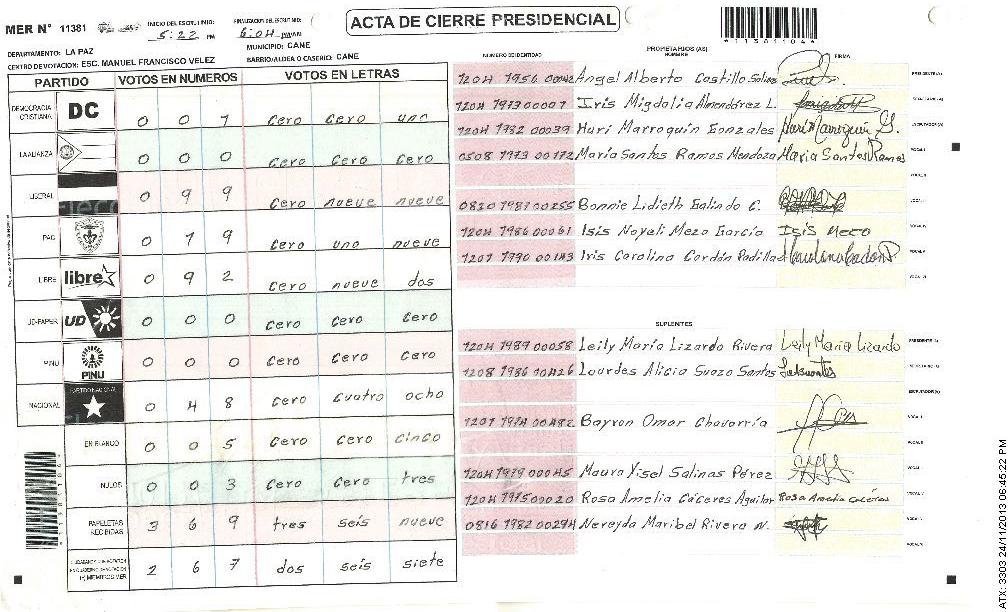 MER N° 11381
INICIO DEL ESCRUTINIO: 5:22 PM
FINALIZACION DEL ESCRUTINIO: 6:04 PM/AM
ACTA DE CIERRE PRESIDENCIAL
*11381104*
DEPARTAMENTO: LA PAZ
MUNICIPIO: CANE
CENTRO DE VOTACION: ESC. MANUEL FRANCISCO VELEZ
BARRIO/ALDEA O CASERIO: CANE
PARTIDO VOTOS EN NUMEROS VOTOS EN LETRAS
DEMOCRACIA CRISTIANA DC 0 0 1 cero cero uno
LA ALIANZA 0 0 0 cero cero cero
LIBERAL 0 9 9 cero nueve nueve
PAC 0 1 9 cero uno nueve
LIBRE libre 0 9 2 cero nueve dos
UD-FAPER UD 0 0 0 cero cero cero
PINU PINU 0 0 0 cero cero cero
NACIONAL 0 4 8 cero cuatro ocho
EN BLANCO 0 0 5 cero cero cinco
NULOS 0 0 3 cero cero tres
PAPELETAS RECIBIDAS 3 6 9 tres seis nueve
2 6 7 dos seis siete
NUMERO DE IDENTIDAD PROPIETARIOS (AS) NOMBRE FIRMA
1204 1956 00042 Angel Alberto Castillo Salinas PRESIDENTE(A)
1204 1973 00007 Iris Migdalia Almendárez L. SECRETARIO(A)
1204 1982 00039 Huri Marroquín Gonzales Huri Marroquin G. ESCRUTADOR(A)
0508 1973 00172 María Santos Ramos Mendoza Maria Santos Ramos VOCAL I
0820 1987 00255 Bonnie Lidieth Galindo C.
1204 1986 00061 Isis Nayeli Meza García Isis Meza
1201 1990 00143 Iris Carolina Cordón Padilla
SUPLENTES
1204 1989 00058 Leily María Lizardo Rivera Leily Maria Lizardo PRESIDENTE(A)
1208 1986 00426 Lourdes Alicia Suazo Santos SECRETARIO(A)
ESCRUTADOR(A)
1201 1974 00482 Bayron Omar Chavarría VOCAL I
1204 1979 00045 Maura Yisel Salinas Pérez
1204 1975 00020 Rosa Amelia Cáceres Aguilar Rosa Amelia Cáceres
0816 1982 00294 Nereyda Maribel Rivera N.
ATX: 3303 24/11/2013 06:45:22 PM